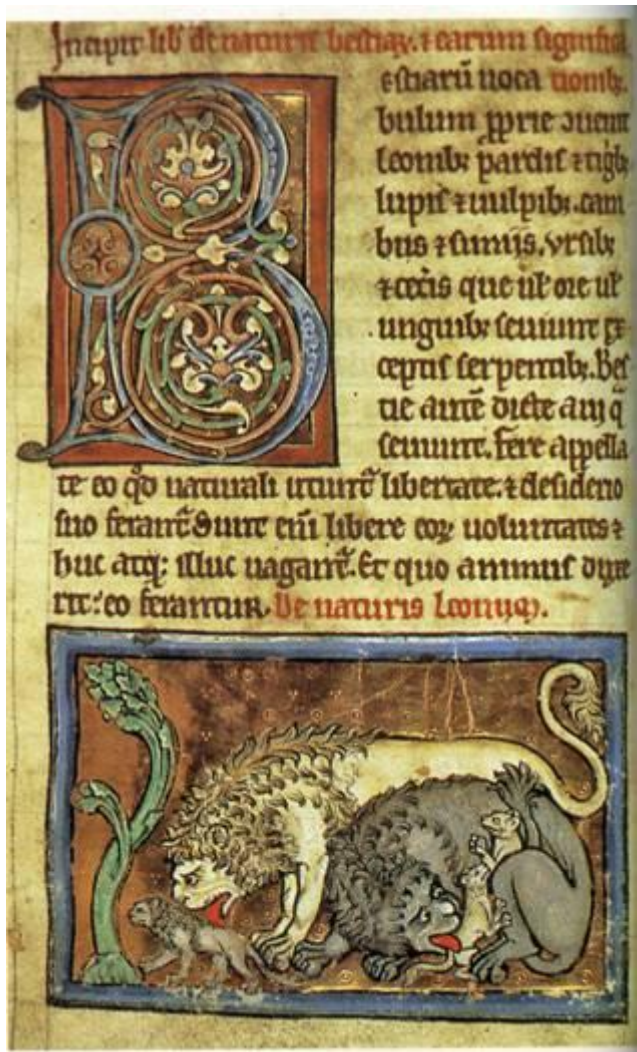 Incipit lib̄ de naturis bestiaꝝ. ⁊ earum signifi
estiarū uoca tionib;.
bulum ꝓprie ↄuenit
leonib; pardis ⁊ tigb;
lupis ⁊ uulpib;. cani
bus ⁊ simiis. vrsib;
⁊ cet̄is que ul̄ ore ul̄
unguib; seuiunt ex
ceptis serpentib;. Bes
tie aut̄e dicte a ui q̄
seuiunt. Fere appella
te eo qd̄ naturali utunt̄ libertate. ⁊ desiderio
suo ferant̄ Sunt eni̅ libere eoꝝ uoluntates ⁊
huc atq; illuc uagant̄. Et quo animus duxe
rit: eo ferantur. De naturis Leonum.